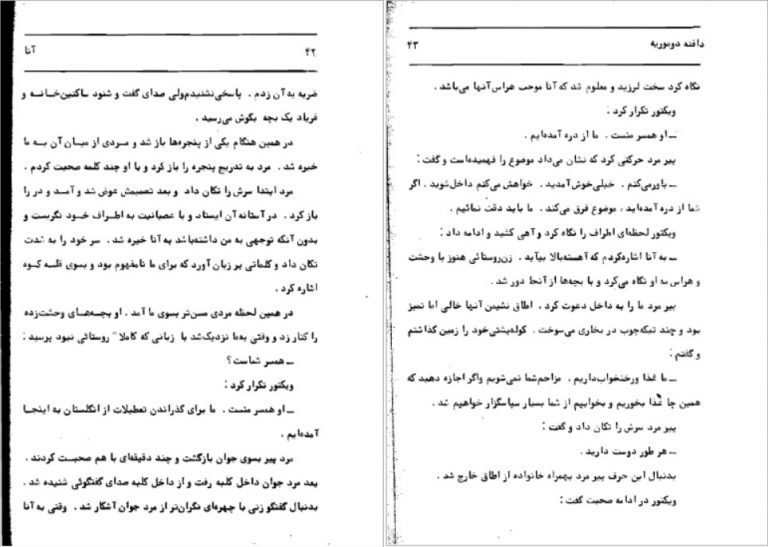 ۴۲ آنا
ضربه به آن زدم . پاسخی نشنیدم ولی صدای گفت و شنود ساکنین خانه و
فریاد یک بچه بگوش می‌رسید .
در همین هنگام یکی از پنجره‌ها باز شد و مردی از میان آن به ما
خیره شد . مرد به تدریج پنجره را باز کرد و با او چند کلمه صحبت کردم .
مرد ابتدا سرش را تکان داد و بعد تصمیمش عوض شد و آمد و در را
باز کرد . در آستانه آن ایستاد و با عصبانیت به اطراف خود نگریست و
بدون آنکه توجهی به من داشته‌باشد به آنا خیره شد . سر خود را به شدت
تکان داد و کلماتی بر زبان آورد که برای ما نامفهوم بود و بسوی قله کوه
اشاره کرد .
در همین لحظه مردی مسن‌تر بسوی ما آمد . او بچه‌های وحشت‌زده
را کنار زد و وقتی به‌ما نزدیک‌شد با زبانی که کاملا" روستائی نبود پرسید :
ــ همسر شماست ؟
ویکتور تکرار کرد :
ــ او همسر منست . ما برای گذراندن تعطیلات از انگلستان به اینجا
آمده‌ایم .
مرد پیر بسوی جوان بازگشت و چند دقیقه‌ای با هم صحبت کردند .
بعد مرد جوان داخل کلبه رفت و از داخل کلبه صدای گفتگوئی شنیده شد .
بدنبال گفتگو زنی با چهره‌ای نگران‌تر از مرد جوان آشکار شد . وقتی به آنا
دافنه دوموریه ۴۳
نگاه کرد سخت لرزید و معلوم شد که آنا موجب هراس آنها می‌باشد .
ویکتور تکرار کرد :
ــ او همسر منست . ما از دره آمده‌ایم .
پیر مرد حرکتی کرد که نشان می‌داد موضوع را فهمیده‌است و گفت :
ــ باور می‌کنم . خیلی خوش آمدید . خواهش می‌کنم داخل شوید . اگر
شما از دره آمده‌اید ، موضوع فرق می‌کند . ما باید دقت نمائیم .
ویکتور لحظه‌ای اطراف را نگاه کرد و آهی کشید و ادامه داد :
ــ به آنا اشاره‌کردم که آهسته‌بالا بیآید . زن‌روستائی هنوز با وحشت
و هراس به او نگاه می‌کرد و با بچه‌ها از آنجا دور شد .
پیر مرد ما را به داخل دعوت کرد . اطاق نشیمن آنها خالی اما تمیز
بود و چند تیکه‌چوب در بخاری می‌سوخت . کوله‌پشتی‌خود را زمین گذاشتم
و گفتم :
ــ ما غذا ورختخواب‌داریم . مزاحم‌شما نمی‌شویم واگر اجازه دهید که
همین جا غذا بخوریم و بخوابیم از شما بسیار سپاسگزار خواهیم شد .
پیر مرد سرش را تکان داد و گفت :
ــ هر طور دوست دارید .
بدنبال این حرف پیر مرد بهمراه خانواده از اطاق خارج شد .
ویکتور در ادامه صحبت گفت :